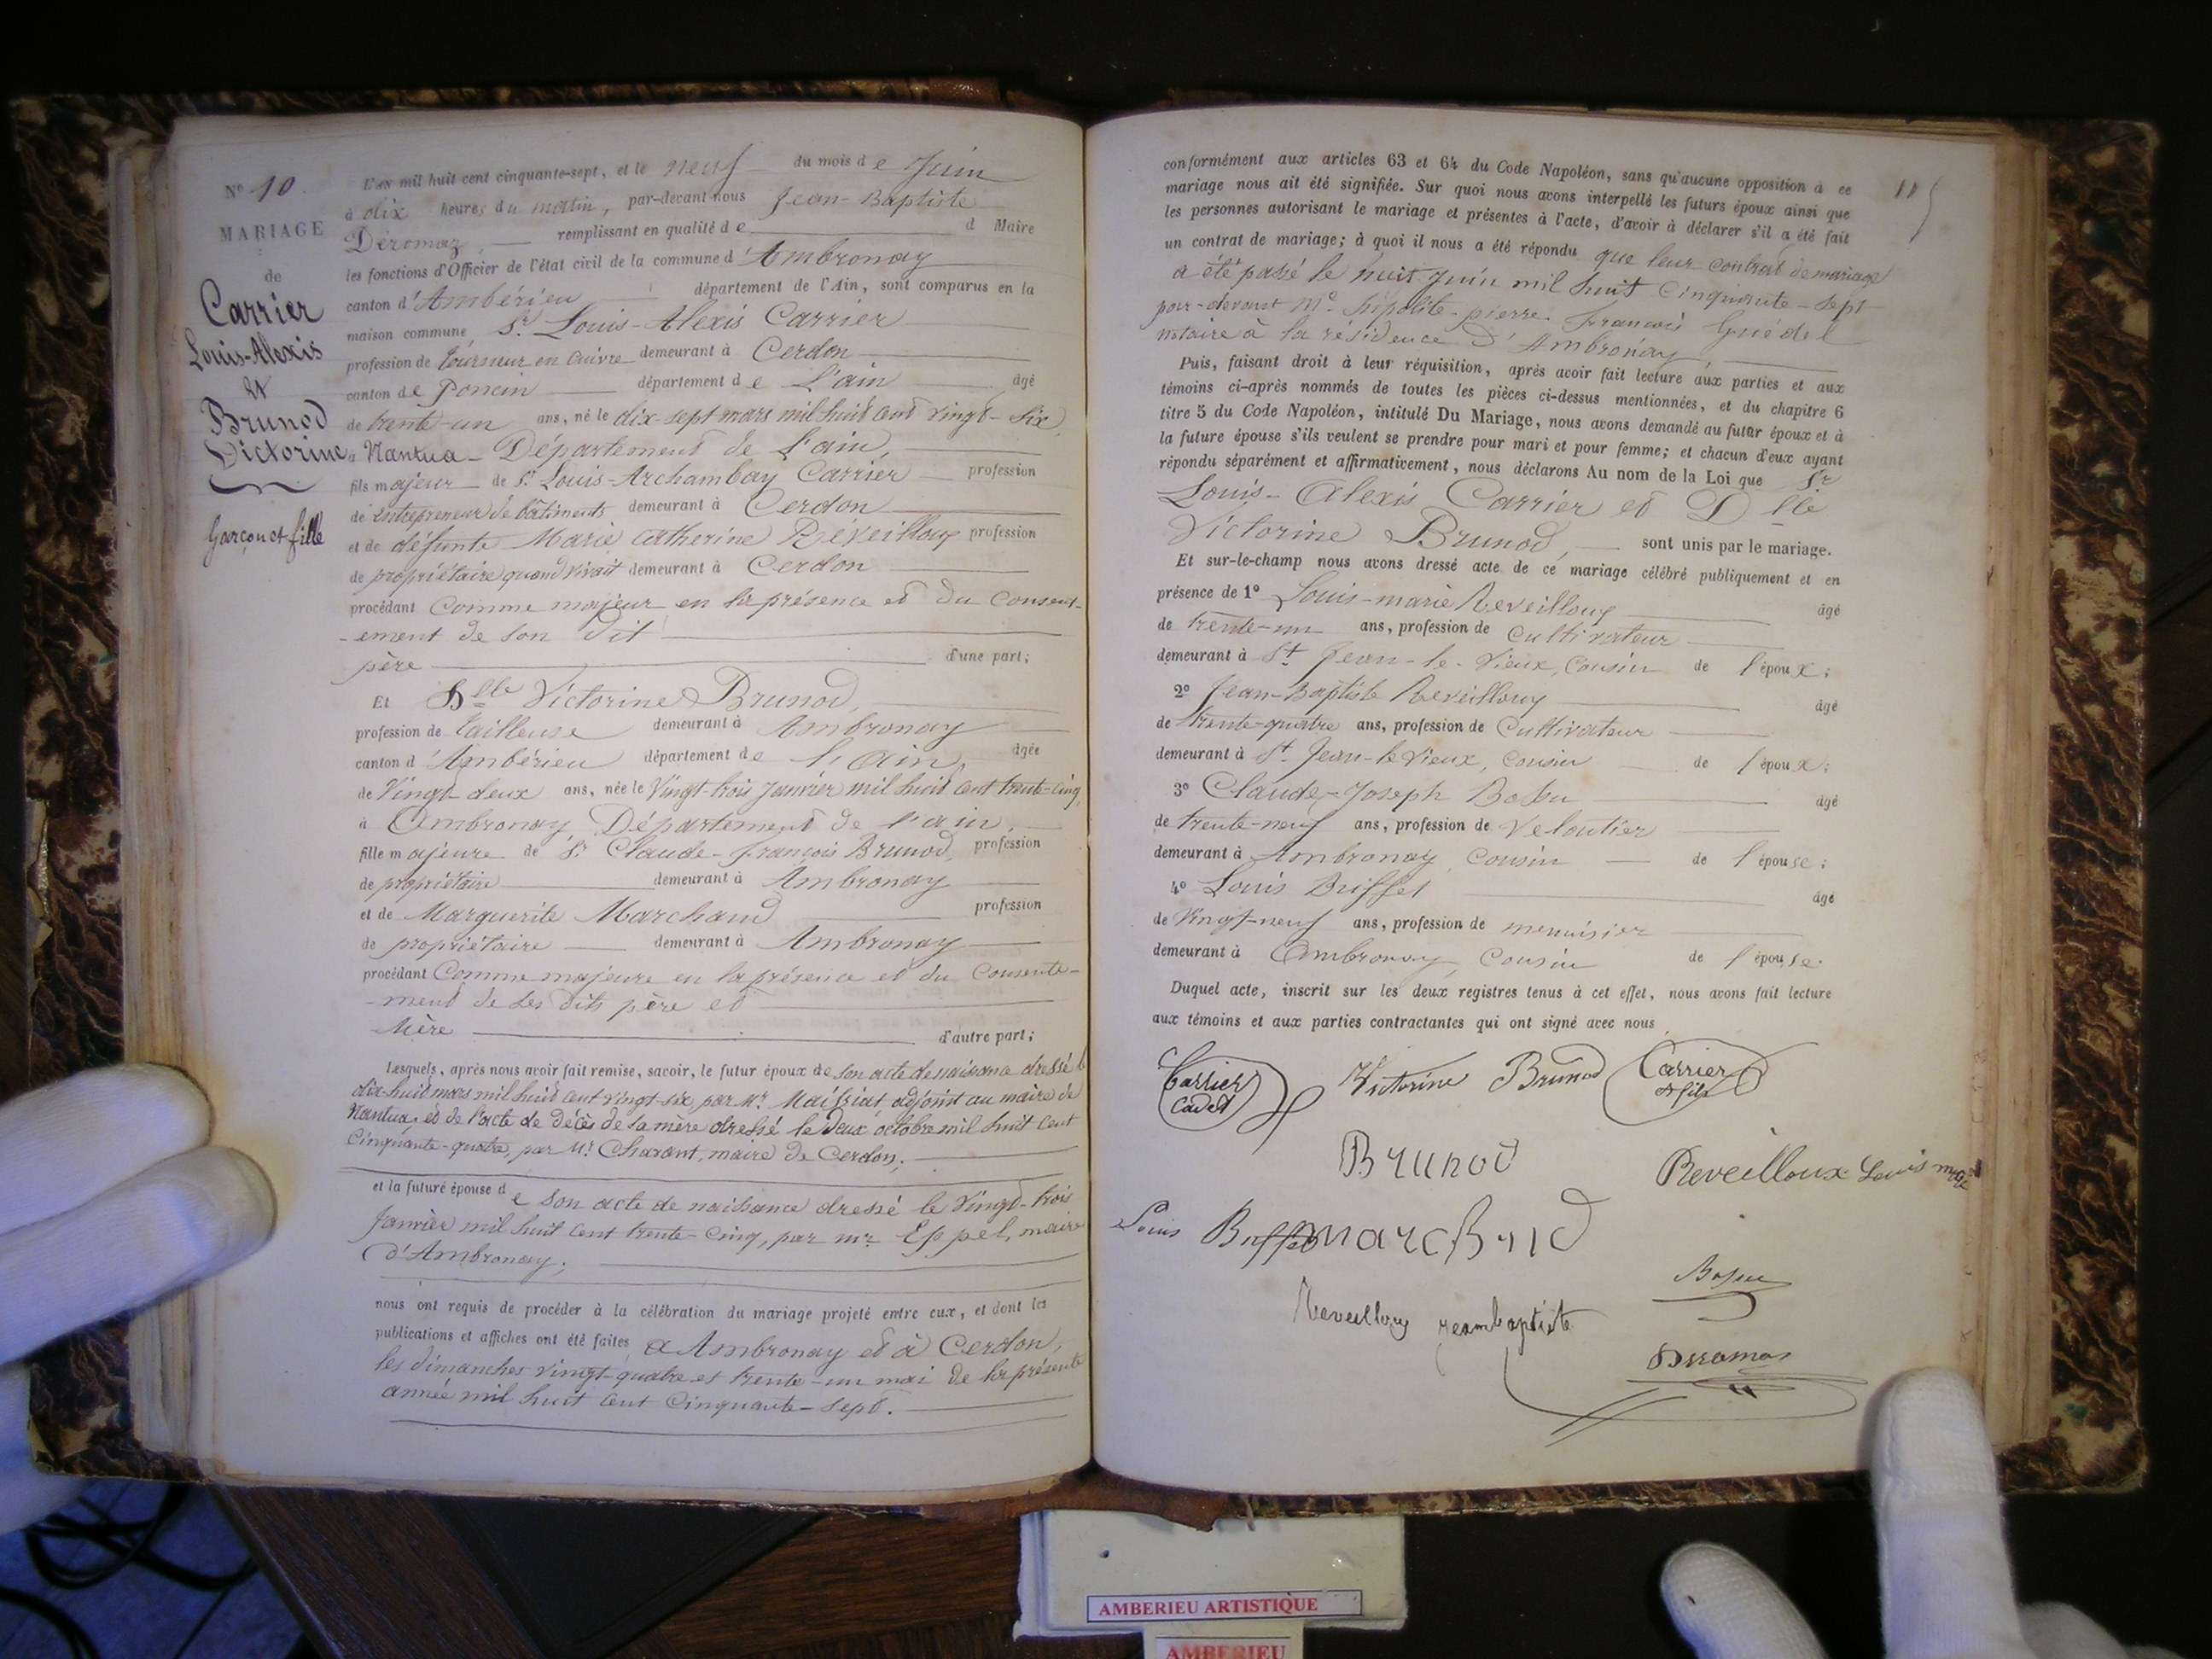 N° 10.
MARIAGE
de
Carrier
Louis-Alexis
et
Brunod
Victorine
Garçon et fille
L'an mil huit cent cinquante-sept, et le neuf du mois de Juin
à dix heures du matin, par-devant nous Jean-Baptiste
Déromaz, remplissant en qualité de d Maire
les fonctions d'Officier de l'état civil de la commune d'Ambronay
canton d'Ambérieu département de l'Ain, sont comparus en la
maison commune, Sr. Louis-Alexis Carrier
profession de tourneur en cuivre demeurant à Cerdon
canton de Poncin département de L'ain âgé
de trente-un ans, né le dix-sept mars mil huit cent vingt-six,
à Nantua - Département de l'ain,
fils majeur de Sr. Louis-Archambay Carrier profession
de entrepreneur de bâtiments demeurant à Cerdon
et de défunte Marie Catherine Réveilloux profession
de propriétaire quand vivait demeurant à Cerdon
procédant Comme majeur en la présence et du Consent-
-ement de son dit
père d'une part;
Et Dlle Victorine Brunod,
profession de tailleuse demeurant à Ambronay
canton d'Ambérieu département de l'Ain, âgée
de Vingt-deux ans, née le Vingt-trois Janvier mil huit cent trente-cinq,
à Ambronay, Département de l'ain,
fille majeure de Sr. Claude-François Brunod, profession
de propriétaire demeurant à Ambronay
et de Marguerite Marchand profession
de propriétaire demeurant à Ambronay
procédant Comme majeure en la présence et du Consente-
-ment de ses dits père et
Mère d'autre part;
Lesquels, après nous avoir fait remise, savoir, le futur époux de son acte de naissance dressé le
dix-huit mars mil huit cent vingt-six par Mr. Maissiat, adjoint au maire de
Nantua, et de l'acte de décès de sa mère dressé le deux octobre mil huit cent
Cinquante-quatre, par Mr. maire de Cerdon;
et la future épouse de son acte de naissance dressé le Vingt-trois
Janvier mil huit cent trente-cinq, par mr. maire
d'Ambronay;
nous ont requis de procéder à la célébration du mariage projeté entre eux, et dont les
publications et affiches ont été faites a Ambronay et à Cerdon,
les dimanches vingt-quatre et trente-un mai de la présente
année mil huit cent Cinquante-sept.
11
conformément aux articles 63 et 64 du Code Napoléon, sans qu'aucune opposition à ce
mariage nous ait été signifiée. Sur quoi nous avons interpellé les futurs époux ainsi que
les personnes autorisant le mariage et présentes à l'acte, d'avoir à déclarer s'il a été fait
un contrat de mariage; à quoi il nous a été répondu que leur contrat de mariage
a été passé le huit Juin mil huit Cinquante-sept
par-devant Me. hipolite-pierre-francois Guédel
notaire à la résidence d'Ambronay,
Puis, faisant droit à leur réquisition, après avoir fait lecture aux parties et aux
témoins ci-après nommés de toutes les pièces ci-dessus mentionnées, et du chapitre 6
titre 5 du Code Napoléon, intitulé Du Mariage, nous avons demandé au futur époux et à
la future épouse s'ils veulent se prendre pour mari et pour femme; et chacun d'eux ayant
répondu séparément et affirmativement, nous déclarons Au nom de la Loi que Sr
Louis-Alexis Carrier et Dlle
Victorine Brunod, sont unis par le mariage.
Et sur-le-champ nous avons dressé acte de ce mariage célébré publiquement et en
présence de 1° Louis-marie Reveilloux âgé
de trente-un ans, profession de cultivateur
demeurant à St Jean-le-Vieux, Cousin de l'époux;
2° Jean-Baptiste Reveilloux âgé
de trente-quatre ans, profession de Cultivateur
demeurant à St. Jean-le Vieux, cousin de l'époux;
3° Claude-Joseph Bossu âgé
de trente-neuf ans, profession de Veloutier
demeurant à Ambronay, Cousin de l'épouse;
4° Louis Buffet âgé
de Vingt-neuf ans, profession de menuisier
demeurant à Ambronay, Cousin de l'épouse.
Duquel acte, inscrit sur les deux registres tenus à cet effet, nous avons fait lecture
aux témoins et aux parties contractantes qui ont signé avec nous
Carrier Cadet Victorine Brunod Carrier & fils
Brunod Reveilloux Louis
Louis Buffet Marchand
Bossu
Reveilloux jeanbaptiste
Deromas
AMBERIEU ARTISTIQUE
AMBERIEU